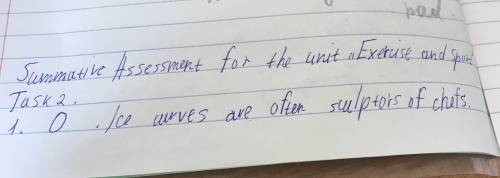 pad.
Summative Assessment for the unit „Exercise and Sport
Task 2.
1. O . Ice curves are often sculptors of chefs.